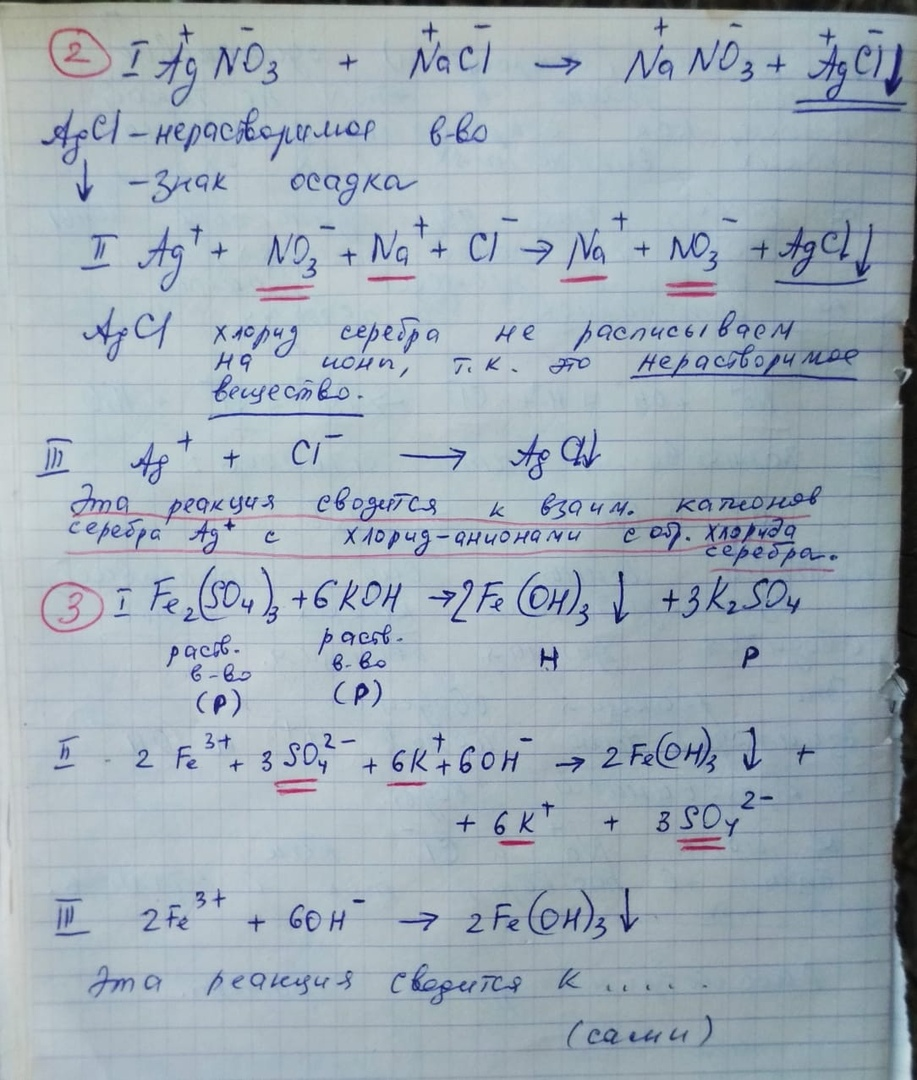 2 I Ag⁺NO₃⁻ + Na⁺Cl⁻ → Na⁺NO₃⁻ + Ag⁺Cl⁻↓
AgCl – нерастворимое в-во
↓ – знак осадка
II Ag⁺ + NO₃⁻ + Na⁺ + Cl⁻ → Na⁺ + NO₃⁻ + AgCl↓
AgCl хлорид серебра не расписываем
на ионы, т.к. это нерастворимое
вещество.
III Ag⁺ + Cl⁻ → AgCl↓
Эта реакция сводится к взаим. катионов
серебра Ag⁺ с хлорид-анионами с обр. хлорида
серебра.
3 I Fe₂(SO₄)₃ + 6KOH → 2Fe(OH)₃↓ + 3K₂SO₄
раств. в-во (Р) раств. в-во (Р) Н Р
II 2Fe³⁺ + 3SO₄²⁻ + 6K⁺ + 6OH⁻ → 2Fe(OH)₃↓ +
+ 6K⁺ + 3SO₄²⁻
III 2Fe³⁺ + 6OH⁻ → 2Fe(OH)₃↓
Эта реакция сводится к .....
(сами)